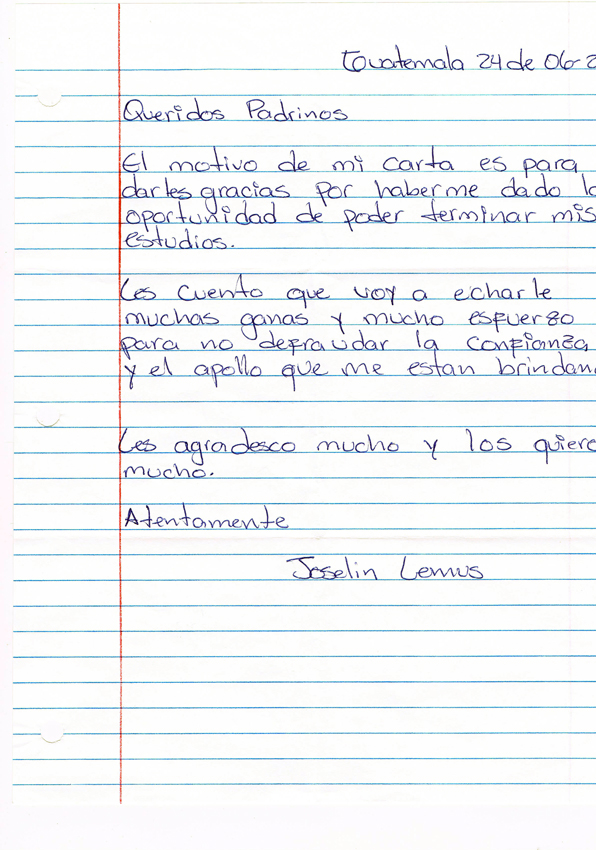 Guatemala 24 de 06-2
Queridos Padrinos
El motivo de mi carta es para
darles gracias por haberme dado la
oportunidad de poder terminar mis
estudios.
Les cuento que voy a echarle
muchas ganas y mucho esfuerzo
para no defraudar la confianza
y el apollo que me estan brindan
Les agradesco mucho y los quiero
mucho.
Atentamente
Joselin Lemus